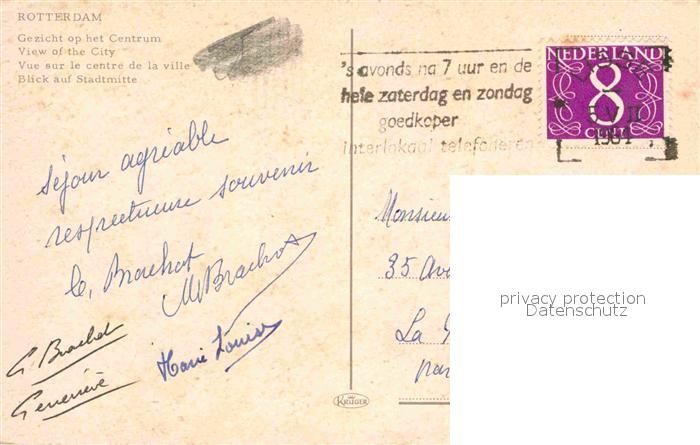 ROTTERDAM
Gezicht op het Centrum
View of the City
Vue sur le centre de la ville
Blick auf Stadtmitte
's avonds na 7 uur en de
hele zaterdag en zondag
goedkoper
interlokaal telefoneren
NEDERLAND
8
CENT
5 VII
1964
séjour agréable
respectueux souvenir
G. Brachot
M Brachot
G Brachot
Geneviève
Marie Louise
Monsieur
35 Ave
La
par
KRUGER
privacy protection
Datenschutz